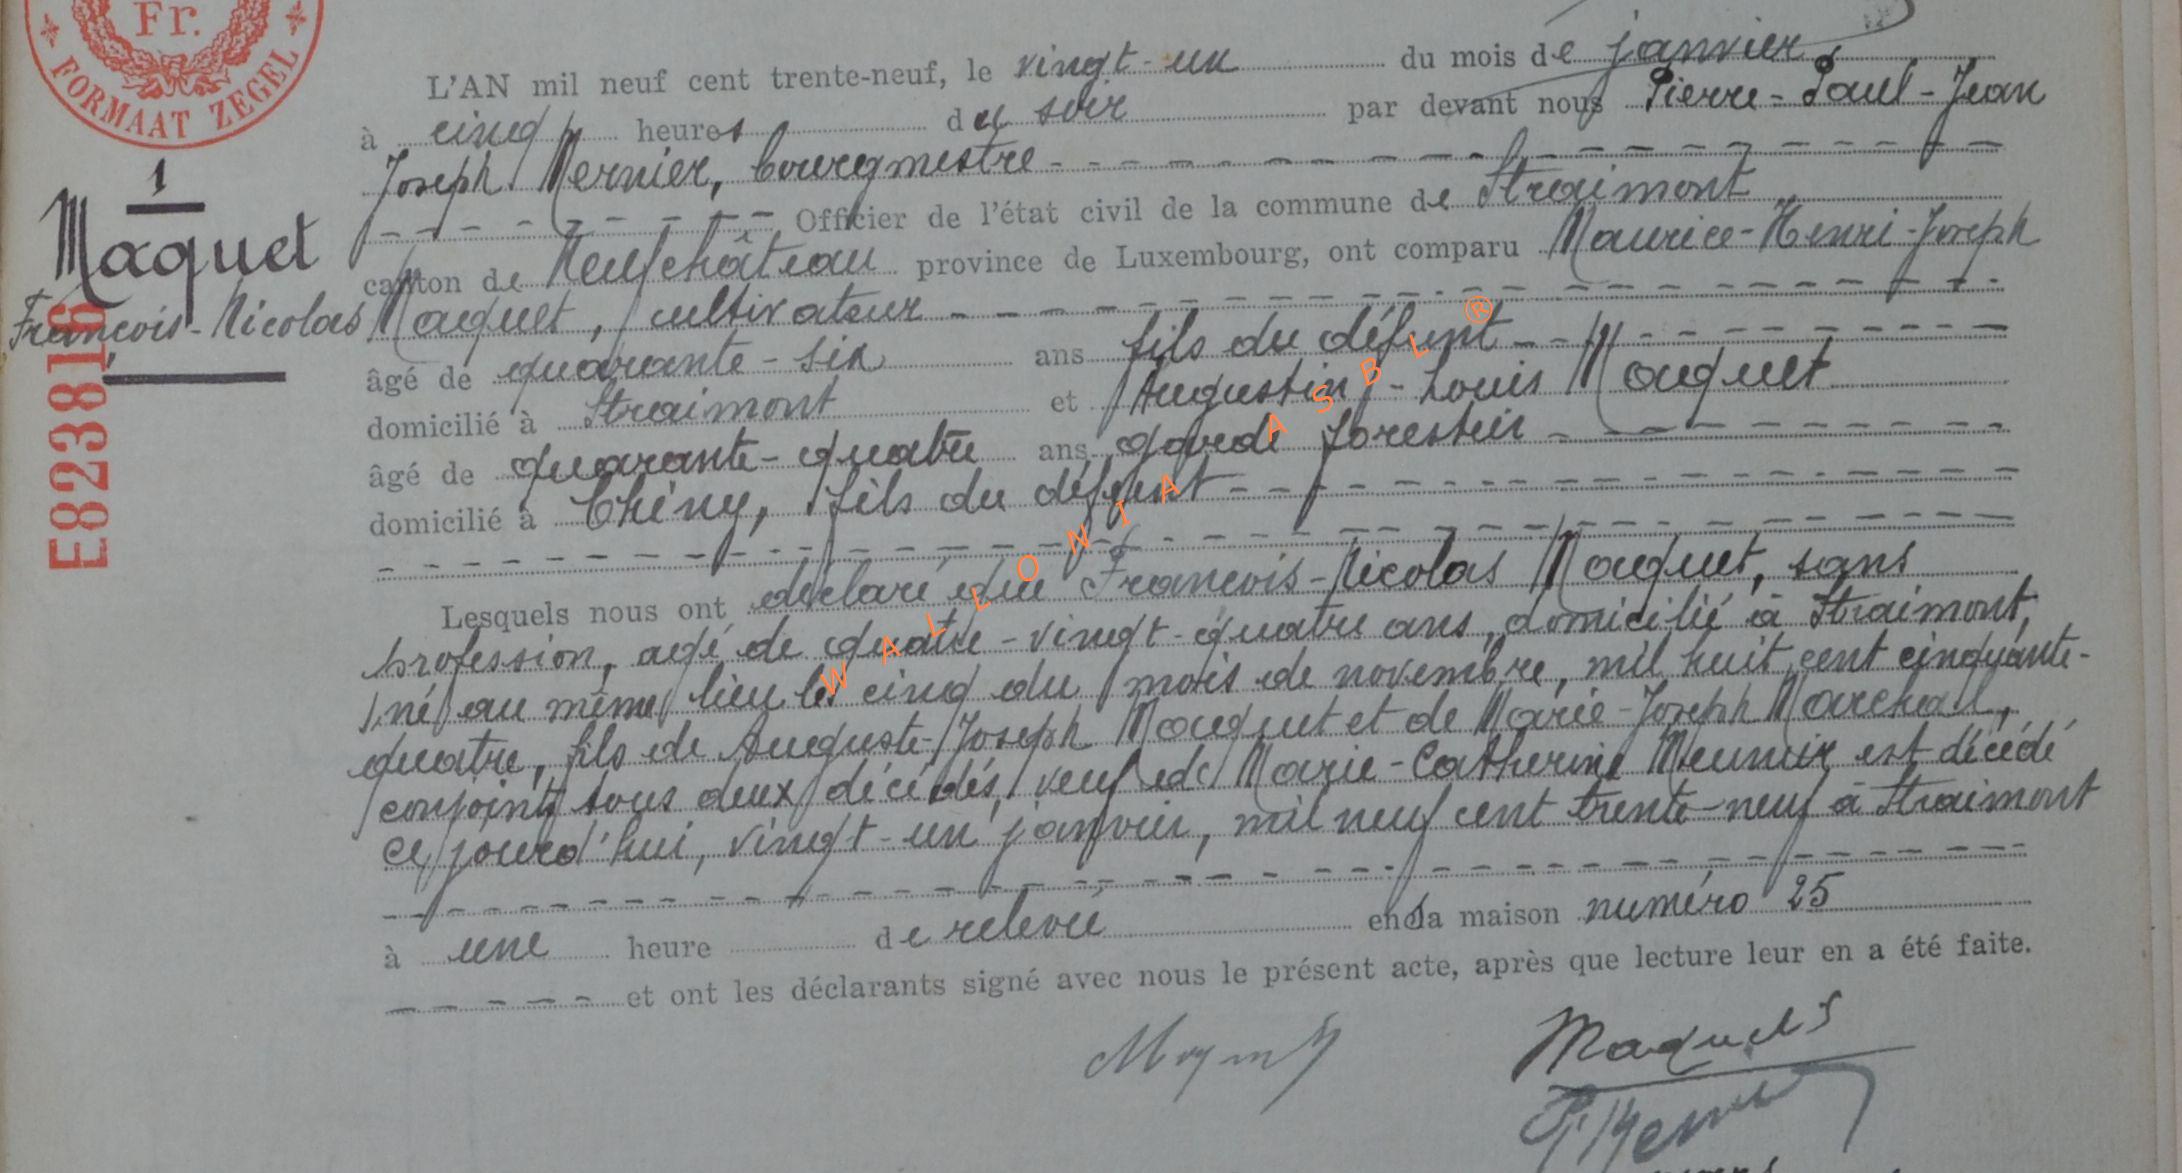 Fr.
FORMAAT ZEGEL
L'AN mil neuf cent trente-neuf, le vingt-un du mois de janvier
à cinq heures du soir par devant nous Pierre-Paul-Jean
Joseph Mernier, bourgmestre
Officier de l'état civil de la commune de Straimont
canton de Neufchâteau province de Luxembourg, ont comparu Maurice-Henri-Joseph
Maquet, cultivateur
âgé de quarante-six ans fils du défunt
domicilié à Straimont et Augustin-Louis Maquet
âgé de quarante-quatre ans garde forestier
domicilié à Chiny, fils du défunt
Lesquels nous ont déclaré que François-Nicolas Maquet, sans
profession, agé de quatre-vingt-quatre ans, domicilié à Straimont,
né au même lieu le cinq du mois de novembre, mil huit cent cinquante-
quatre, fils de Auguste-Joseph Maquet et de Marie-Joseph Marchal,
conjoints tous deux décédés, veuf de Marie-Catherine Meunier est décédé
ce jourd'hui, vingt-un janvier, mil neuf cent trente-neuf à Straimont
à une heure de relevée en la maison numéro 25
et ont les déclarants signé avec nous le présent acte, après que lecture leur en a été faite.
1
Maquet
François-Nicolas
E823816
WALLONIA ASBL ®
Maquet